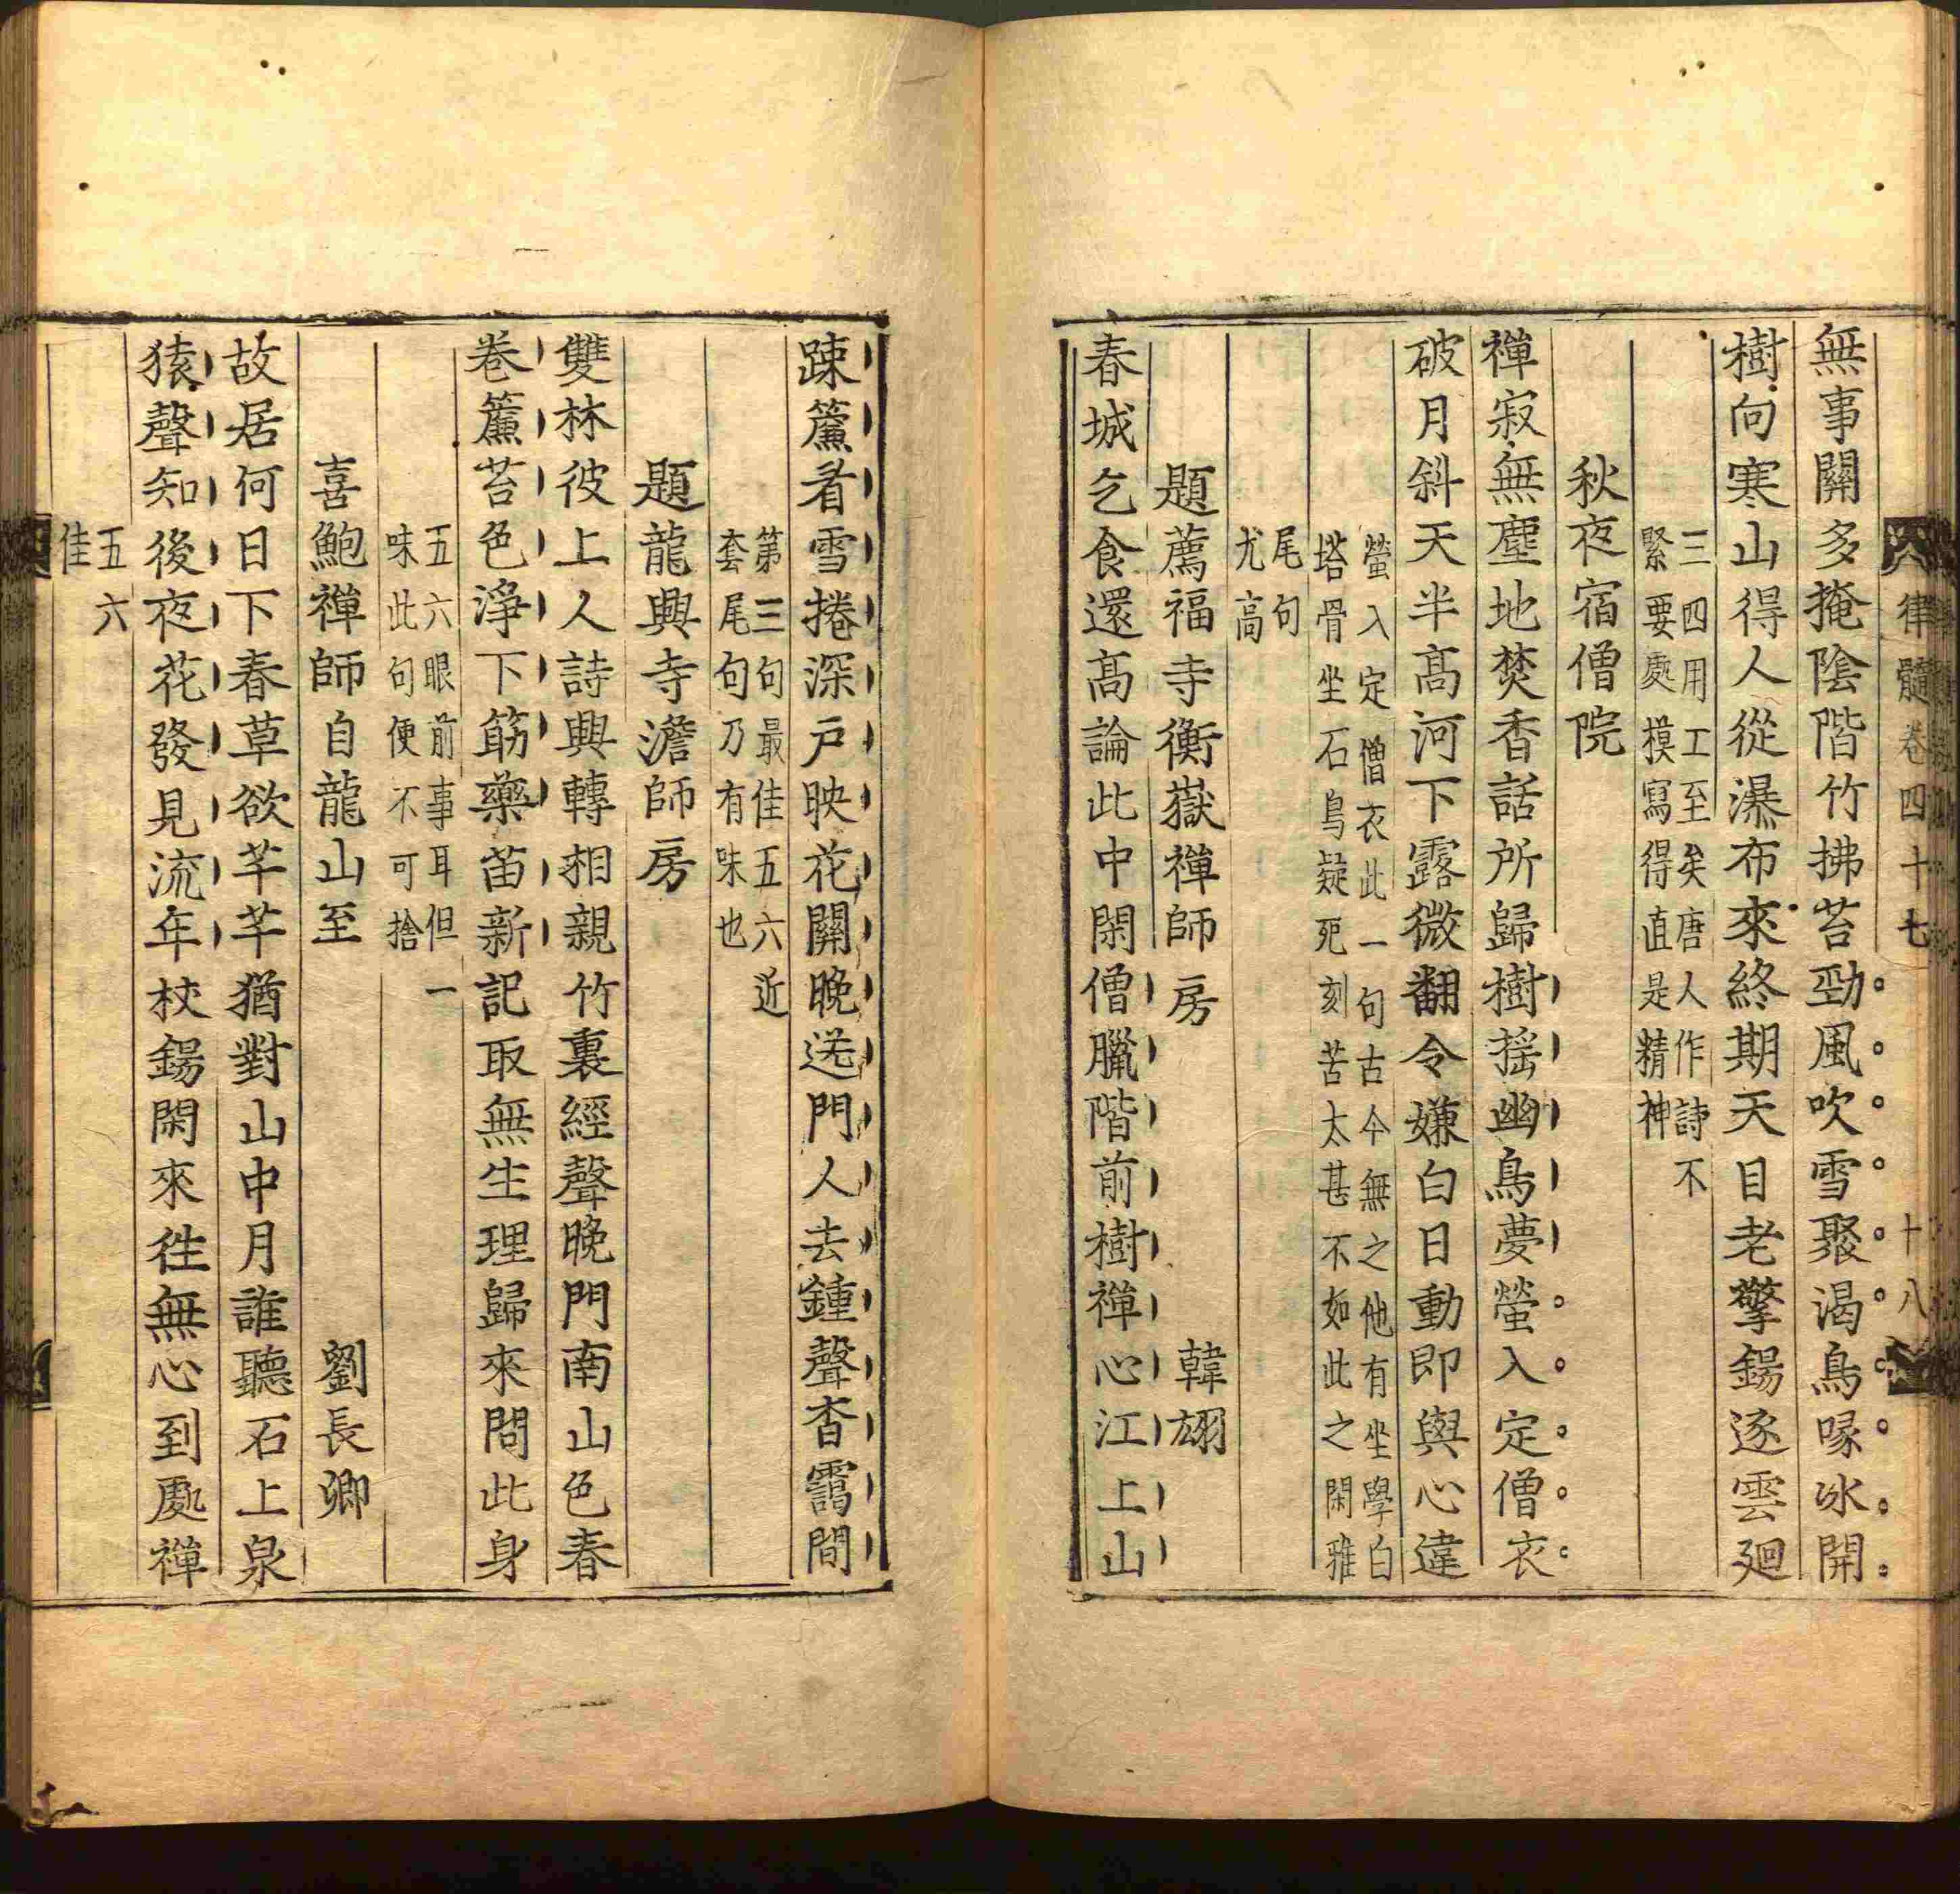 律髓卷四十七
十八
無事關多掩陰階竹拂苔勁風吹雪聚渴鳥啄冰開
樹向寒山得人從瀑布來終期天目老擎錫逐雲廻
三四用工至矣唐人作詩不
緊要處摸寫得直是精神
秋夜宿僧院
禪寂無塵地焚香話所歸樹搖幽鳥夢螢入定僧衣
破月斜天半高河下露微翻令嫌白日動即與心違
螢入定僧衣此一句古今無之他有坐學白
塔骨坐石鳥疑死刻苦太甚不如此之閑雅
尾句
尤高
題薦福寺衡嶽禪師房
韓翃
春城乞食還高論此中閑僧臘階前樹禪心江上山
踈簾看雪捲深戶映花關晚送門人去鍾聲杳靄間
第三句最佳五六近
套尾句乃有味也
題龍興寺澹師房
雙林彼上人詩興轉相親竹裏經聲晚門南山色春
卷簾苔色淨下筯藥苗新記取無生理歸來問此身
五六眼前事耳但一
味此句便不可捨
喜鮑禪師自龍山至
劉長卿
故居何日下春草欲芊芊猶對山中月誰聽石上泉
猿聲知後夜花發見流年杖錫閑來徃無心到處禪
五六
佳